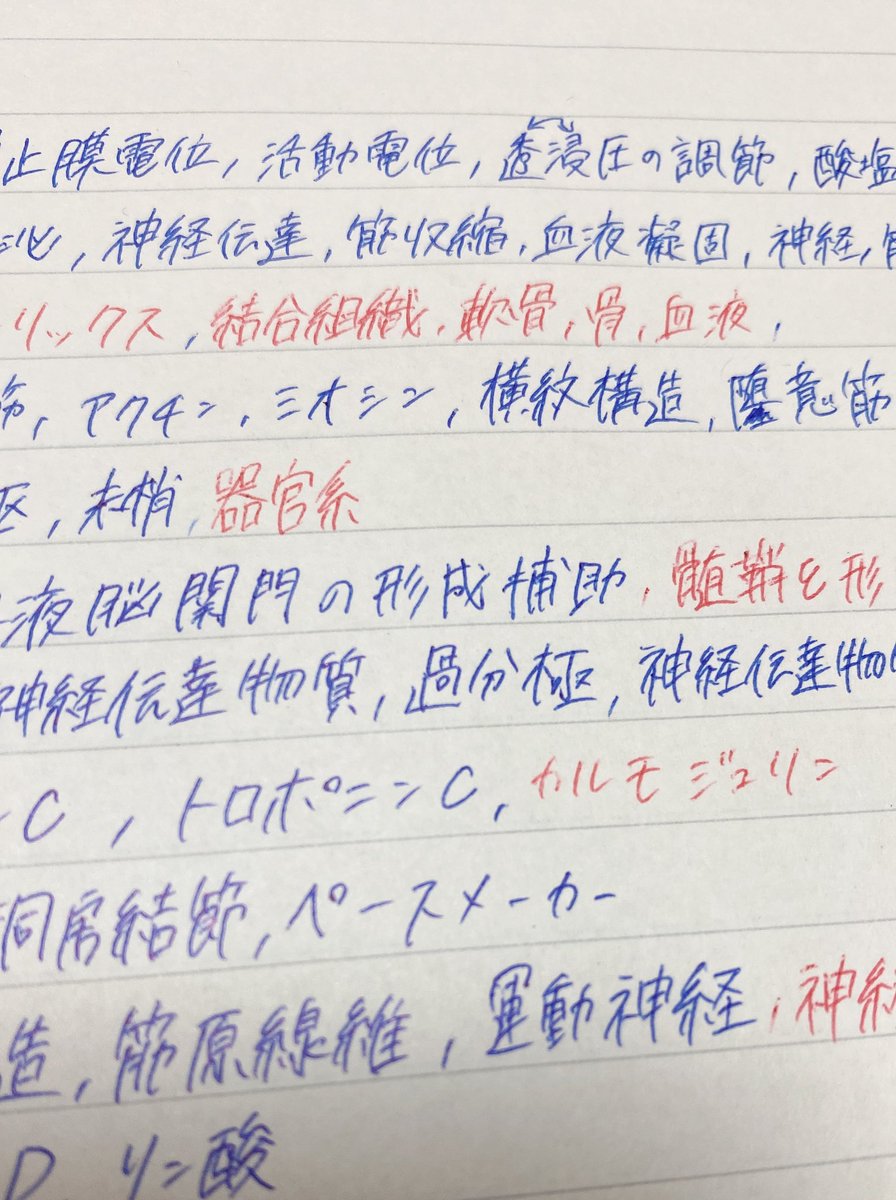 止膜電位, 活動電位, 透浸圧の調節, 酸塩
神経伝達, 筋収縮, 血液凝固, 神経,
リックス, 結合組織, 軟骨, 骨, 血液,
筋, アクチン, ミオシン, 横紋構造, 随意筋
区, 末梢, 器官系
液脳関門の形成補助, 髄鞘を形
神経伝達物質, 過分極, 神経伝達物
C, トロポニンC, カルモジュリン
洞房結節, ペースメーカー
造, 筋原線維, 運動神経, 神経
D リン酸